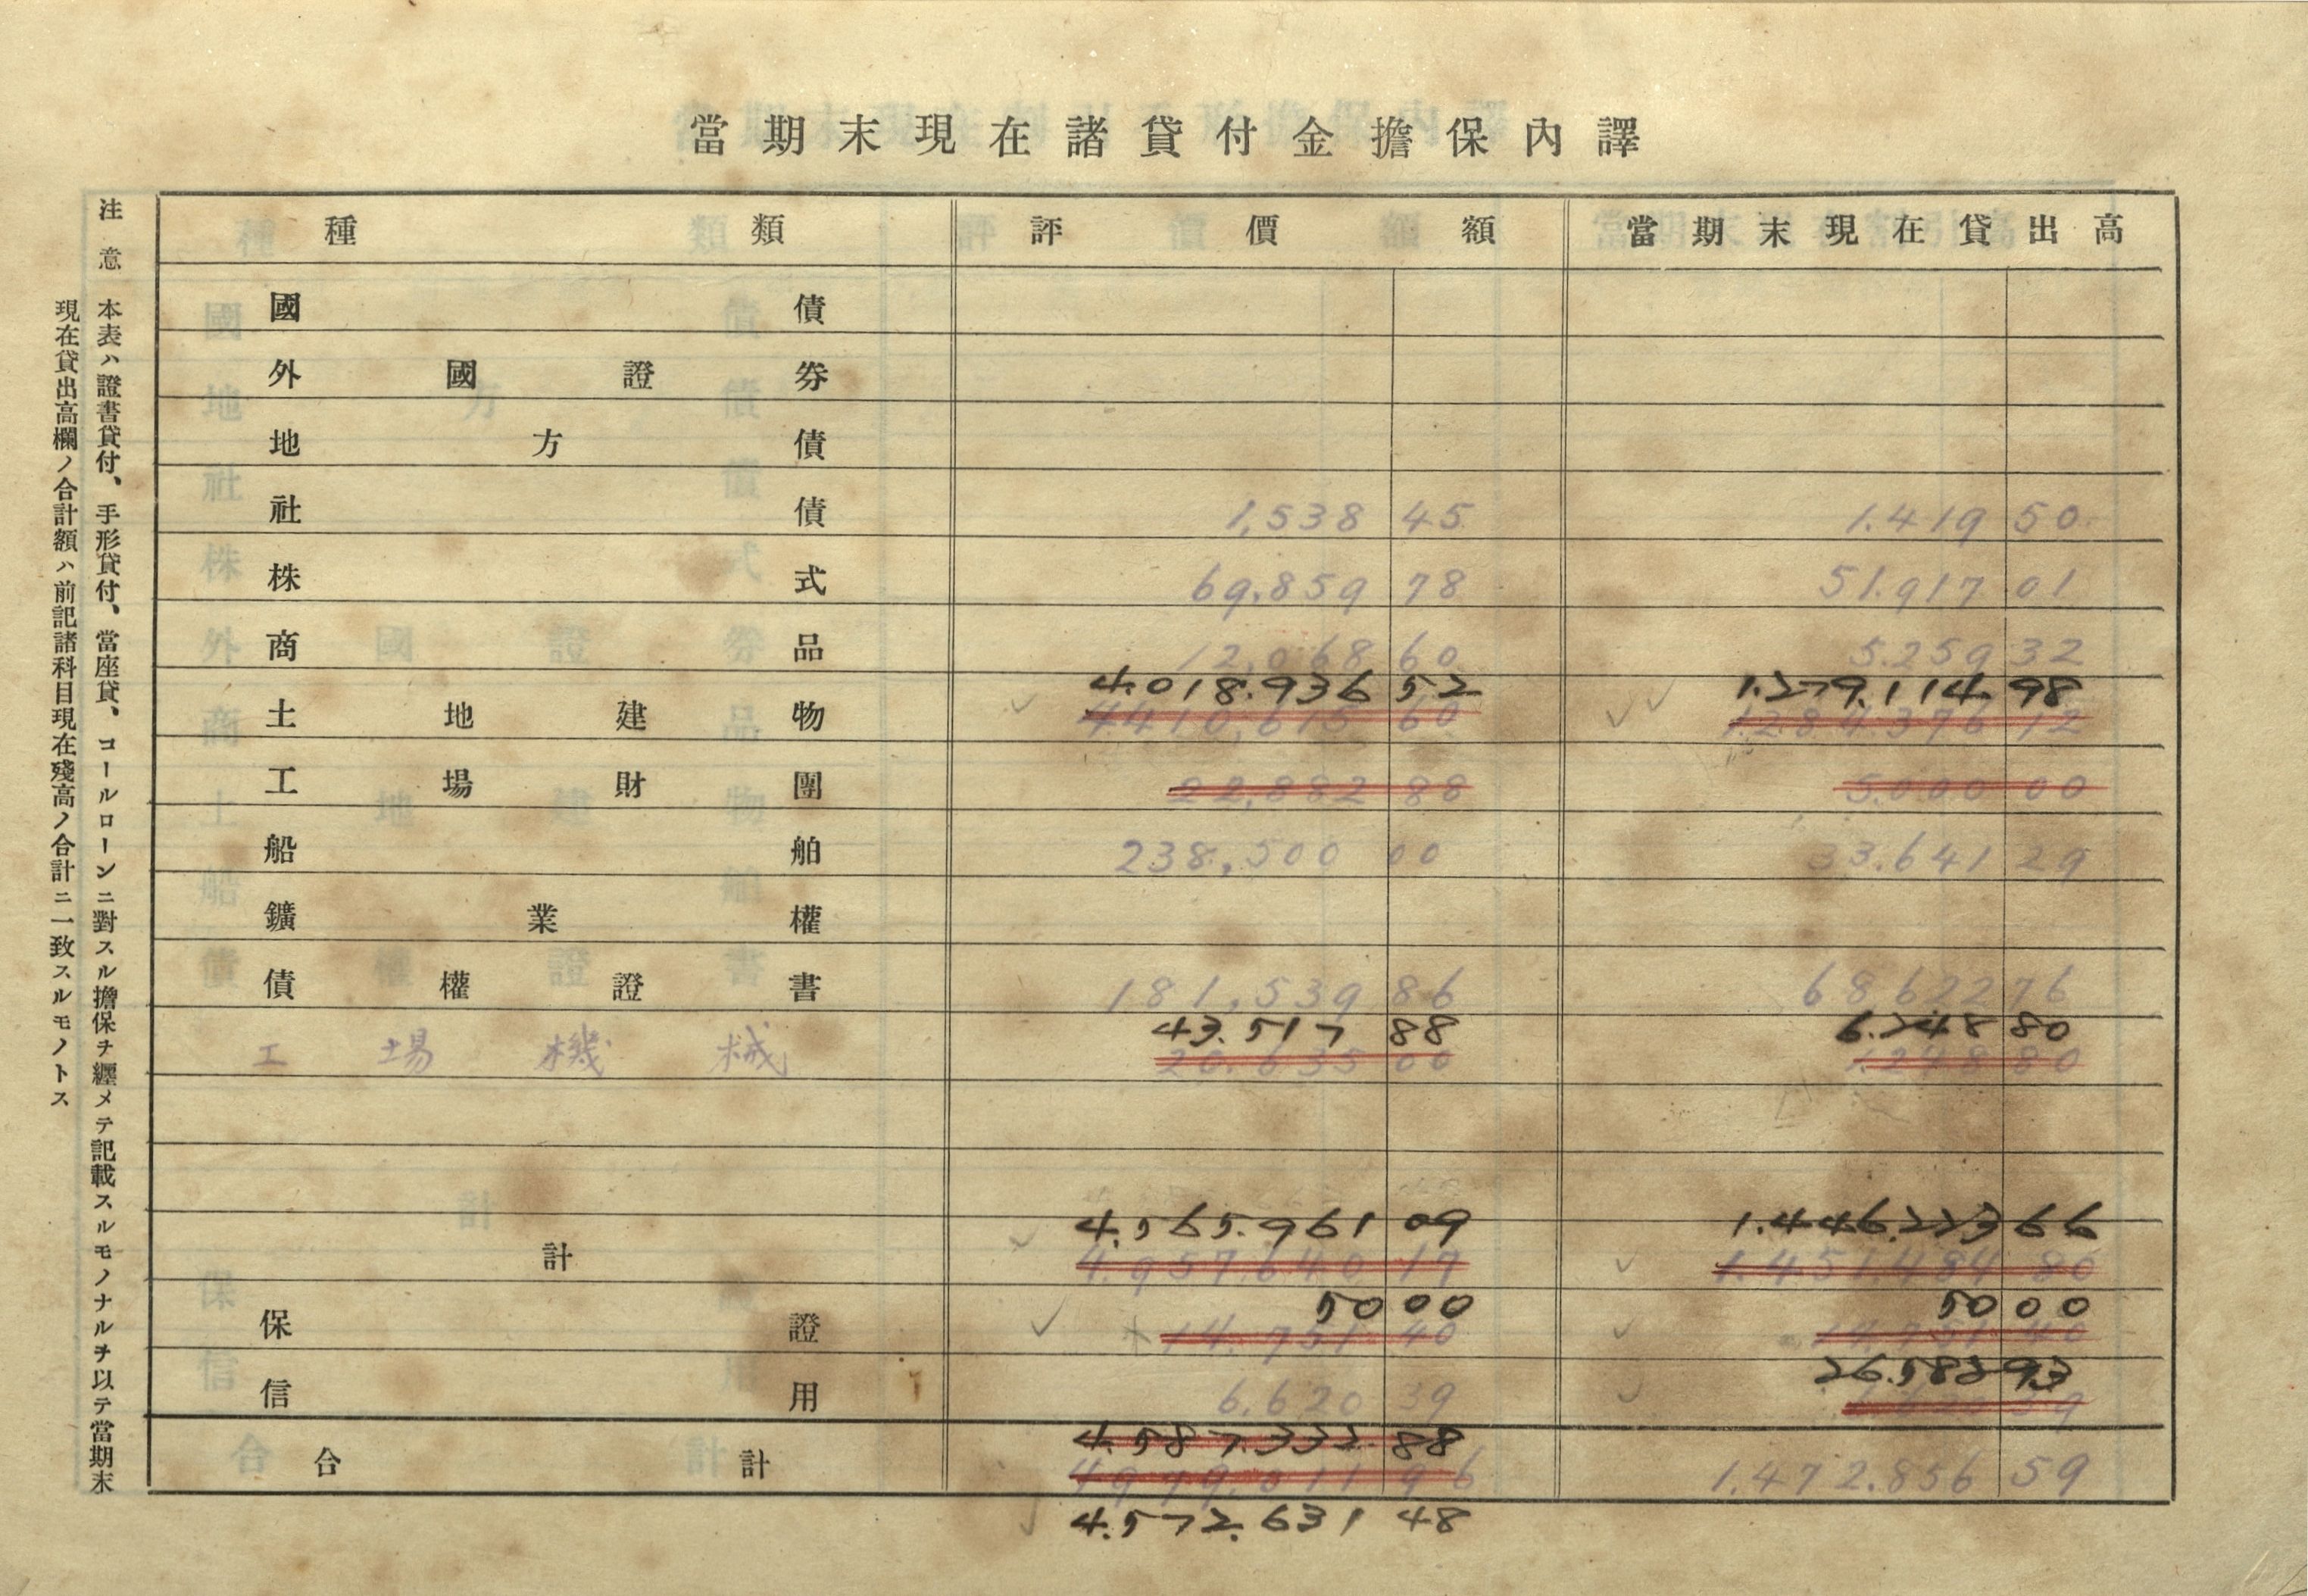 當期末現在諸貸付金擔保內譯
種類 評價額 當期末現在貸出高
國債
外國證券
地方債
社債 1,538 45 1.419 50
株式 69.859 78 51.917 01
商品 12,068 60 5.259 32
4.018.936 52 1.279.114 98
土地建物 4410,615 60 1.284.376 12
工場財團 22,882 88 5.000 00
船舶 238,500 00 33.641 29
鑛業權
債權證書 181,539 86 68.622 76
43.517 88 6.248 80
工場機械 20.635 00 1.248 80
4.565.961 09 1.446.223 66
計 4.957.640 17 1.451.484 80
50 00 50 00
保證 14.751 40 14.751 40
26.582 93
信用 6.620 39 6.620 39
4.587.332 88
合計 4979.011 96 1.472.856 59
4.572.631 48
注意 本表ハ證書貸付、手形貸付、當座貸、コールローンニ對スル擔保ヲ纒メテ記載スルモノナルヲ以テ當期末
現在貸出高欄ノ合計額ハ前記諸科目現在殘高ノ合計ニ一致スルモノトス